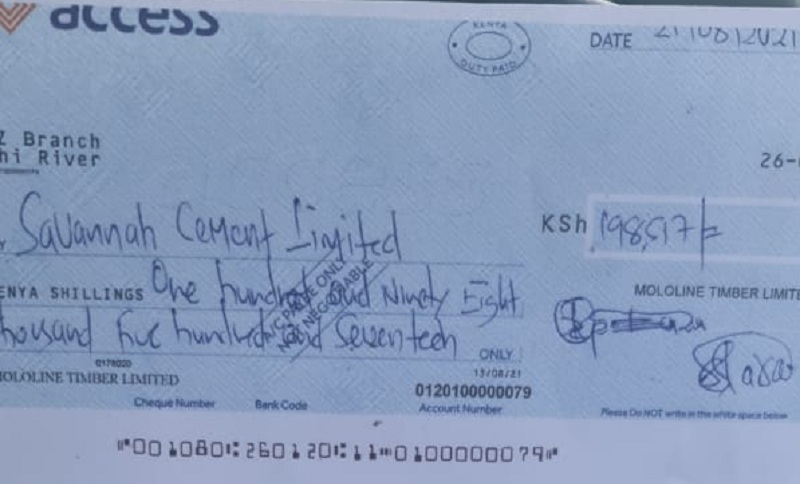 access
KENYA
DUTY PAID
DATE 21/08/2021
Z Branch
hi River
26-
Savannah Cement Limited
KSh 198,517/=
ENYA SHILLINGS One hundred and Ninety Eight
housand five hundred and Seventeen ONLY
A/C PAYEE ONLY
NOT NEGOTIABLE
MOLOLINE TIMBER LIMITE
0178020
OLOLINE TIMBER LIMITED
13/08/21
0120100000079
Cheque Number Bank Code Account Number
Please Do NOT write in the white space below
⑈001080⑆260120⑆11⑉0100000079⑈